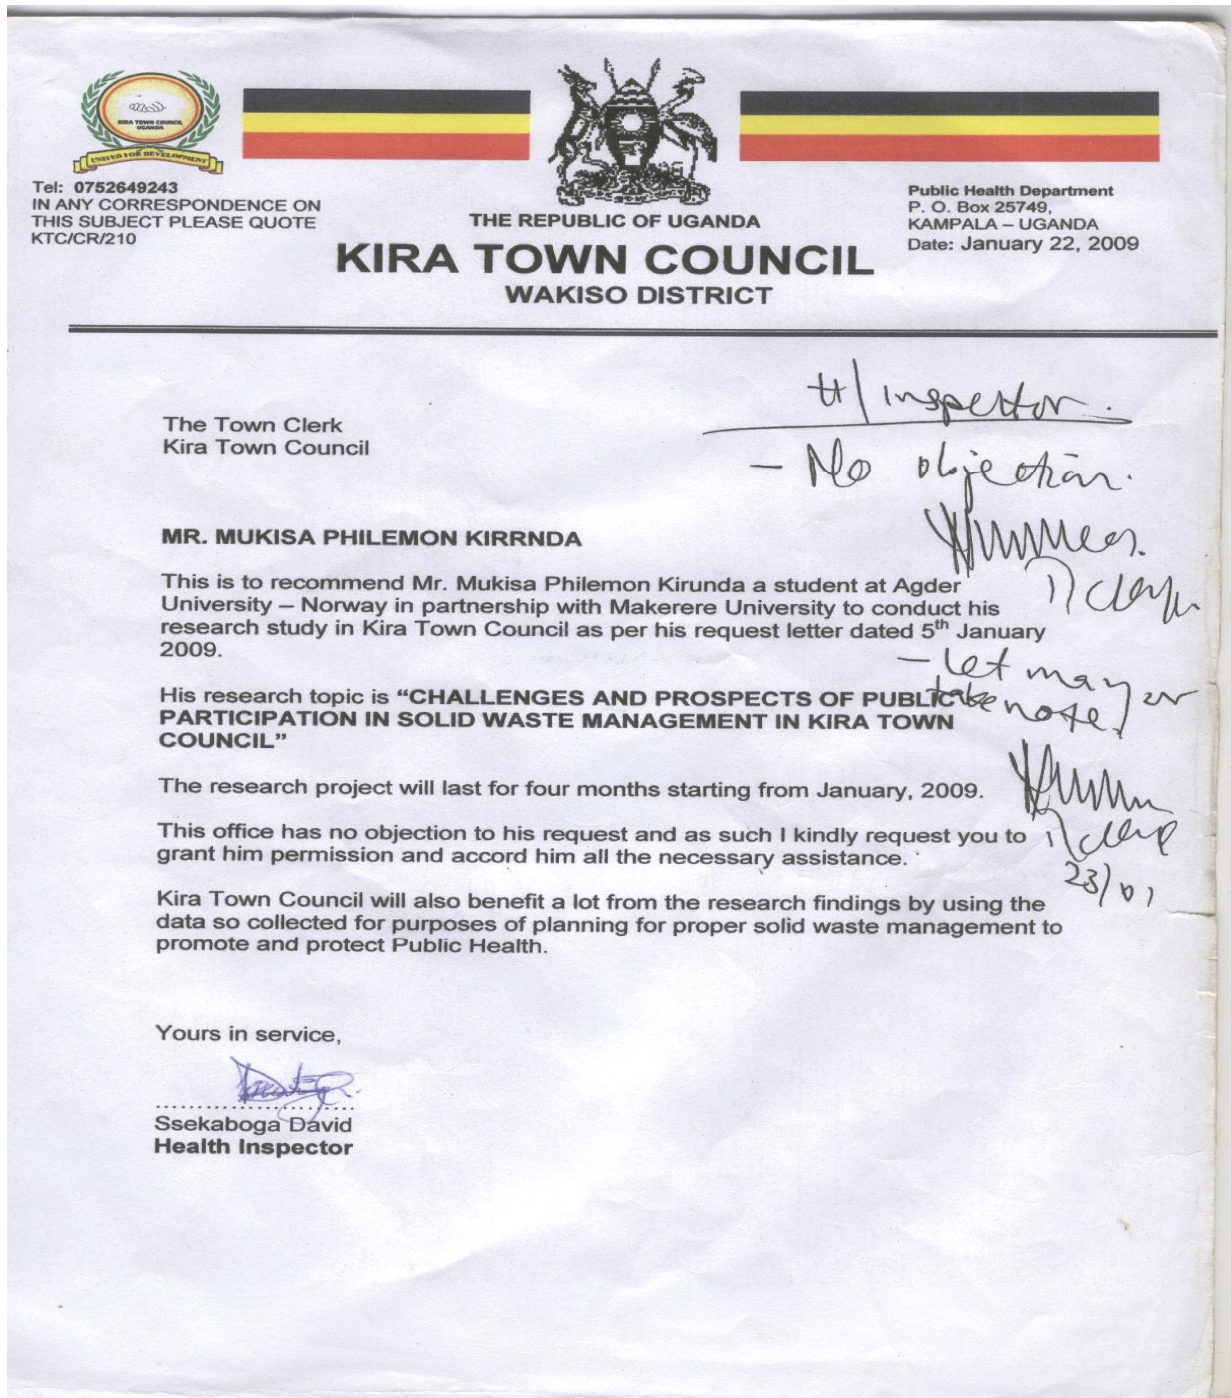 KIRA TOWN COUNCIL
UGANDA
UNITED FOR DEVELOPMENT
Tel: 0752649243
IN ANY CORRESPONDENCE ON
THIS SUBJECT PLEASE QUOTE
KTC/CR/210
THE REPUBLIC OF UGANDA
KIRA TOWN COUNCIL
WAKISO DISTRICT
Public Health Department
P. O. Box 25749,
KAMPALA – UGANDA
Date: January 22, 2009
H/Inspector.
- No objection.
T/Clerk
The Town Clerk
Kira Town Council
MR. MUKISA PHILEMON KIRRNDA
This is to recommend Mr. Mukisa Philemon Kirunda a student at Agder
University – Norway in partnership with Makerere University to conduct his
research study in Kira Town Council as per his request letter dated 5th January
2009.
- Let mayor
take note
His research topic is “CHALLENGES AND PROSPECTS OF PUBLIC
PARTICIPATION IN SOLID WASTE MANAGEMENT IN KIRA TOWN
COUNCIL”
The research project will last for four months starting from January, 2009.
This office has no objection to his request and as such I kindly request you to
grant him permission and accord him all the necessary assistance.
T/Clerk
23/01
Kira Town Council will also benefit a lot from the research findings by using the
data so collected for purposes of planning for proper solid waste management to
promote and protect Public Health.
Yours in service,
Ssekaboga David
Health Inspector